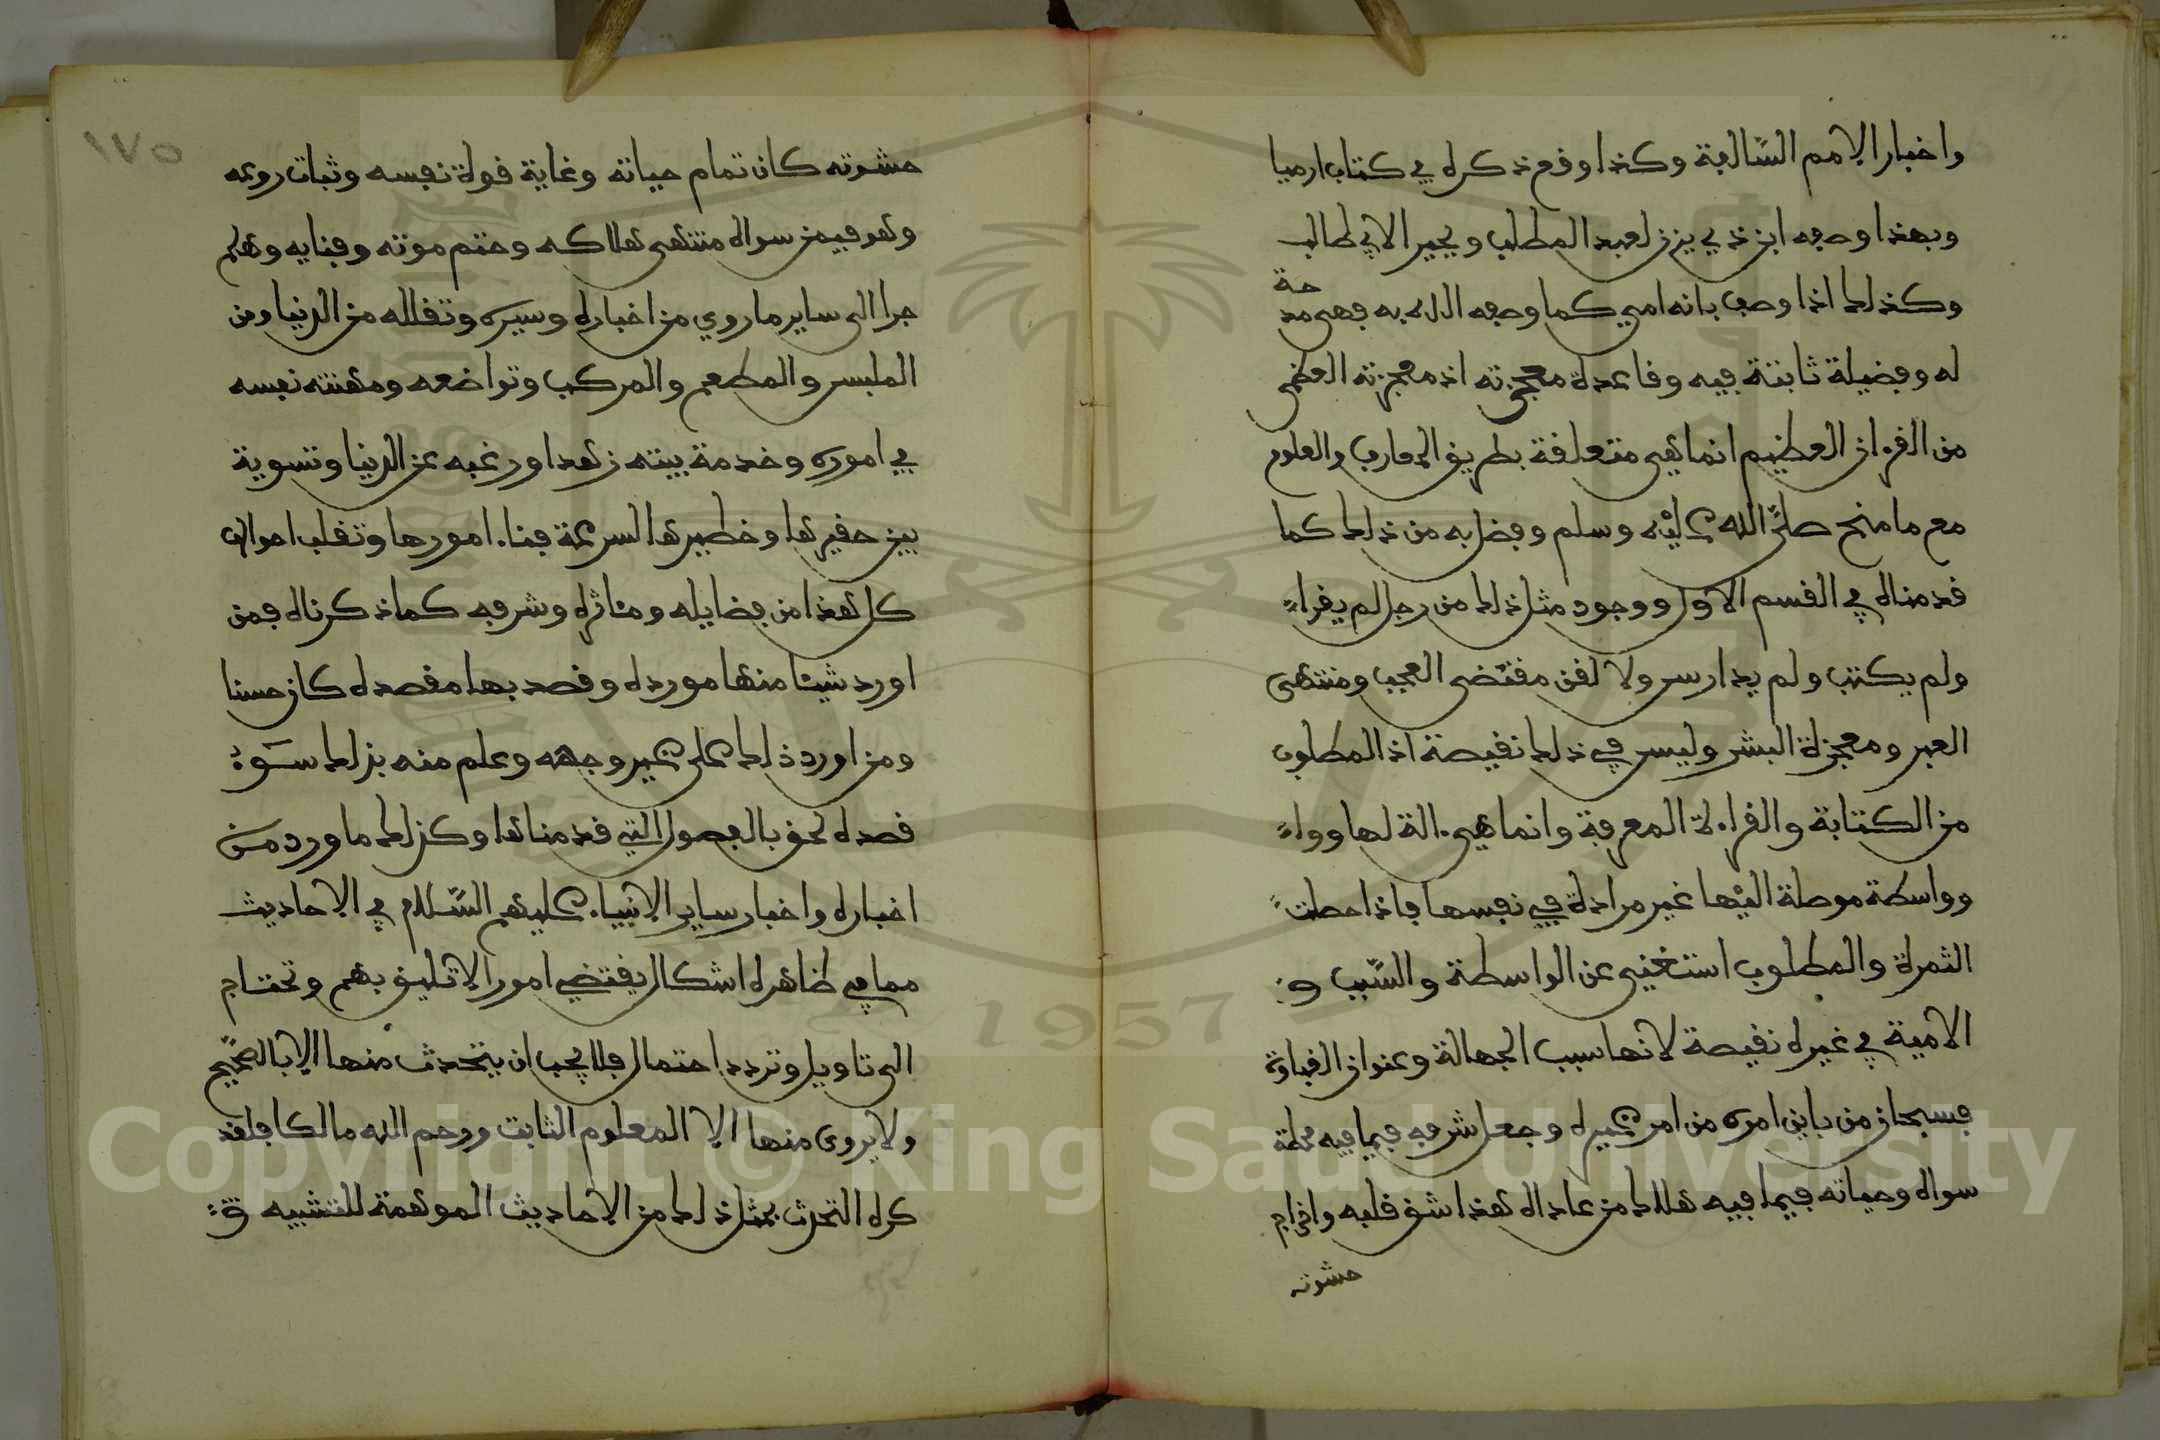 واخبار الامم السالفة وكذا وقع ذكره في كتاب ارميا
وبهذا وصفه ابن ذي يزن لعبد المطلب وبحيرا لابي طالب
وكذلك اذا وصف بانه امي كما وصفه الله به فهي مدحة
له وفضيلة ثابتة فيه وقاعدة معجزته اذ معجزته العظمى
من القرءان العظيم انما هي متعلقة بطريق المعارف والعلوم
مع ما منح صلى الله عليه وسلم وفضل به من ذلك كما
قدمناه في القسم الاول ووجود مثل ذلك من رجل لم يقرا
ولم يكتب ولم يدارس ولا لقن مقتضى العجب ومنتهى
العبر ومعجزة البشر وليس في ذلك نقيصة اذ المطلوب
من الكتابة والقراءة المعرفة وانما هي ءالة لها ووا
وواسطة موصلة اليها غير مرادة في نفسها فاذا حصلت
الثمرة والمطلوب استغني عن الواسطة والسبب و
الامية في غيره نقيصة لانها سبب الجهالة وعنوان الغباوة
فسبحان من باين امره من امر غيره وجعل شرفه فيما فيه محطة
سواه وحياته فيما فيه هلاك من عاداه هذا شق قلبه واخراج
حشوته
١٧٥
حشوته كان تمام حياته وغاية قوة نفسه وثبات روعه
وهو فيمن سواه منتهى هلاكه وحتم موته وفنايه وهلم
جرا الى ساير ما روي من اخباره وسيره وتقلله من الدنيا ومن
الملبس والمطعم والمركب وتواضعه ومهنته نفسه
في اموره وخدمة بيته زهدا ورغبه عن الدنيا وتسوية
بين حقيرها وخطيرها لسرعة فناء امورها وتقلب احوالها
كل هذا من فضايله ومئاثره وشرفه كما ذكرناه فمن
اورد شيئا منها مورده وقصد بها مقصده كان حسنا
ومن اورد ذلك على غير وجهه وعلم منه بذلك سوء
قصده لحق بالفصول التي قدمناها وكذلك ما ورد من
اخباره واخبار ساير الانبياء عليهم السلام في الاحاديث
مما في ظاهره اشكال يقتضي امورا لا تليق بهم وتحتاج
الى تاويل وتردد احتمال فلا يجب ان يتحدث منها الا بالصحيح
ولا يروى منها الا المعلوم الثابت ورحم الله مالكا فلقد
كره التحدث بمثل ذلك من الاحاديث الموهمة للتشبيه و
1957
Copyright © King Saud University